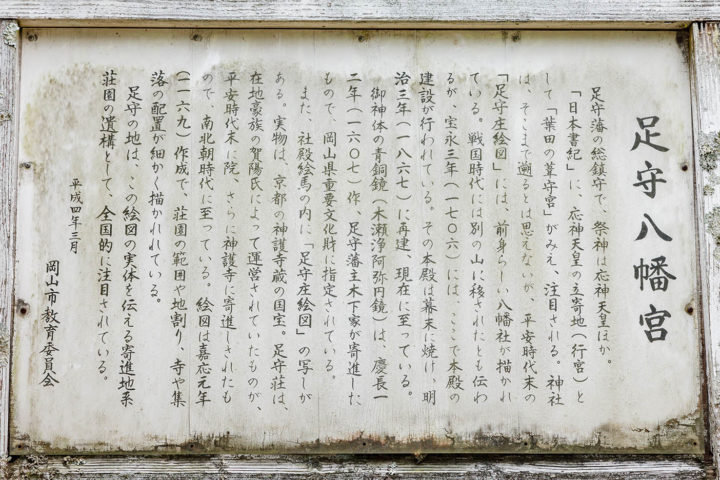 足守八幡宮
足守藩の総鎮守で、祭神は応神天皇ほか。
「日本書紀」に、応神天皇の立寄地（行宮）と
して「葉田の葦守宮」がみえ、注目される。神社
は、そこまで遡るとは思えないが、平安時代末の
「足守庄絵図」には、前身らしい八幡社が描かれ
ている。戦国時代には別の山に移されたとも伝わ
るが、宝永三年（一七〇六）には、ここで本殿の
建設が行われている。その本殿は幕末に焼け、明
治三年（一八六七）に再建、現在に至っている。
御神体の青銅鏡（木瀬浄阿弥円鏡）は、慶長一
二年（一六〇七）作、足守藩主木下家が寄進した
もので、岡山県重要文化財に指定されている。
また、社殿絵馬の内に「足守庄絵図」の写しが
ある。実物は、京都の神護寺蔵の国宝。足守荘は、
在地豪族の賀陽氏によって運営されていたものが、
平安時代末に院、さらに神護寺に寄進しされたも
ので、南北朝時代に至っている。絵図は嘉応元年
（一一六九）作成で、荘園の範囲や地割り、寺や集
落の配置が細かく描かれれている。
足守の地は、この絵図の実体を伝える寄進地系
荘園の遺構として、全国的に注目されている。
平成四年三月
岡山市教育委員会